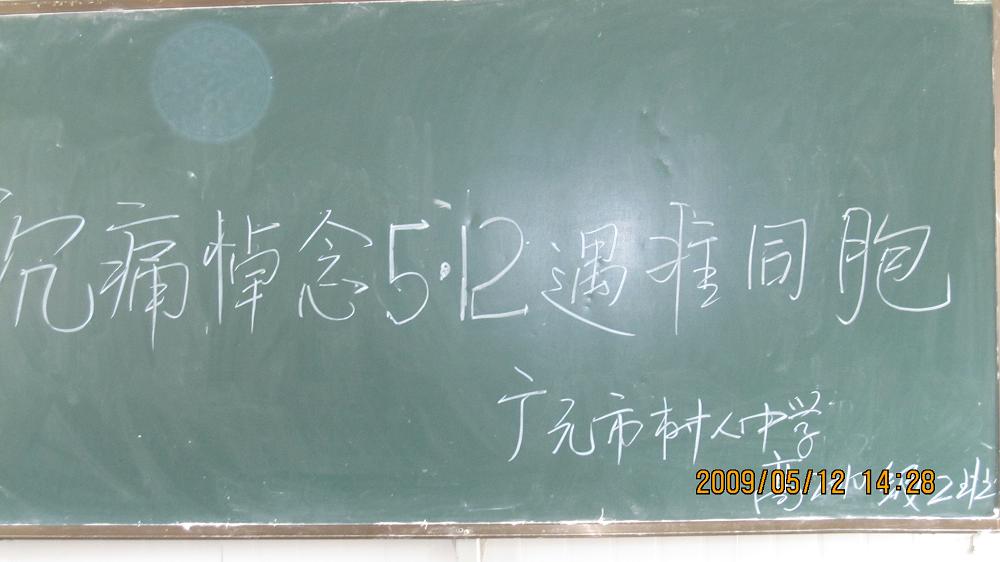 沉痛悼念5·12遇难同胞
广元市树人中学
高 级2班
2009/05/12 14:28